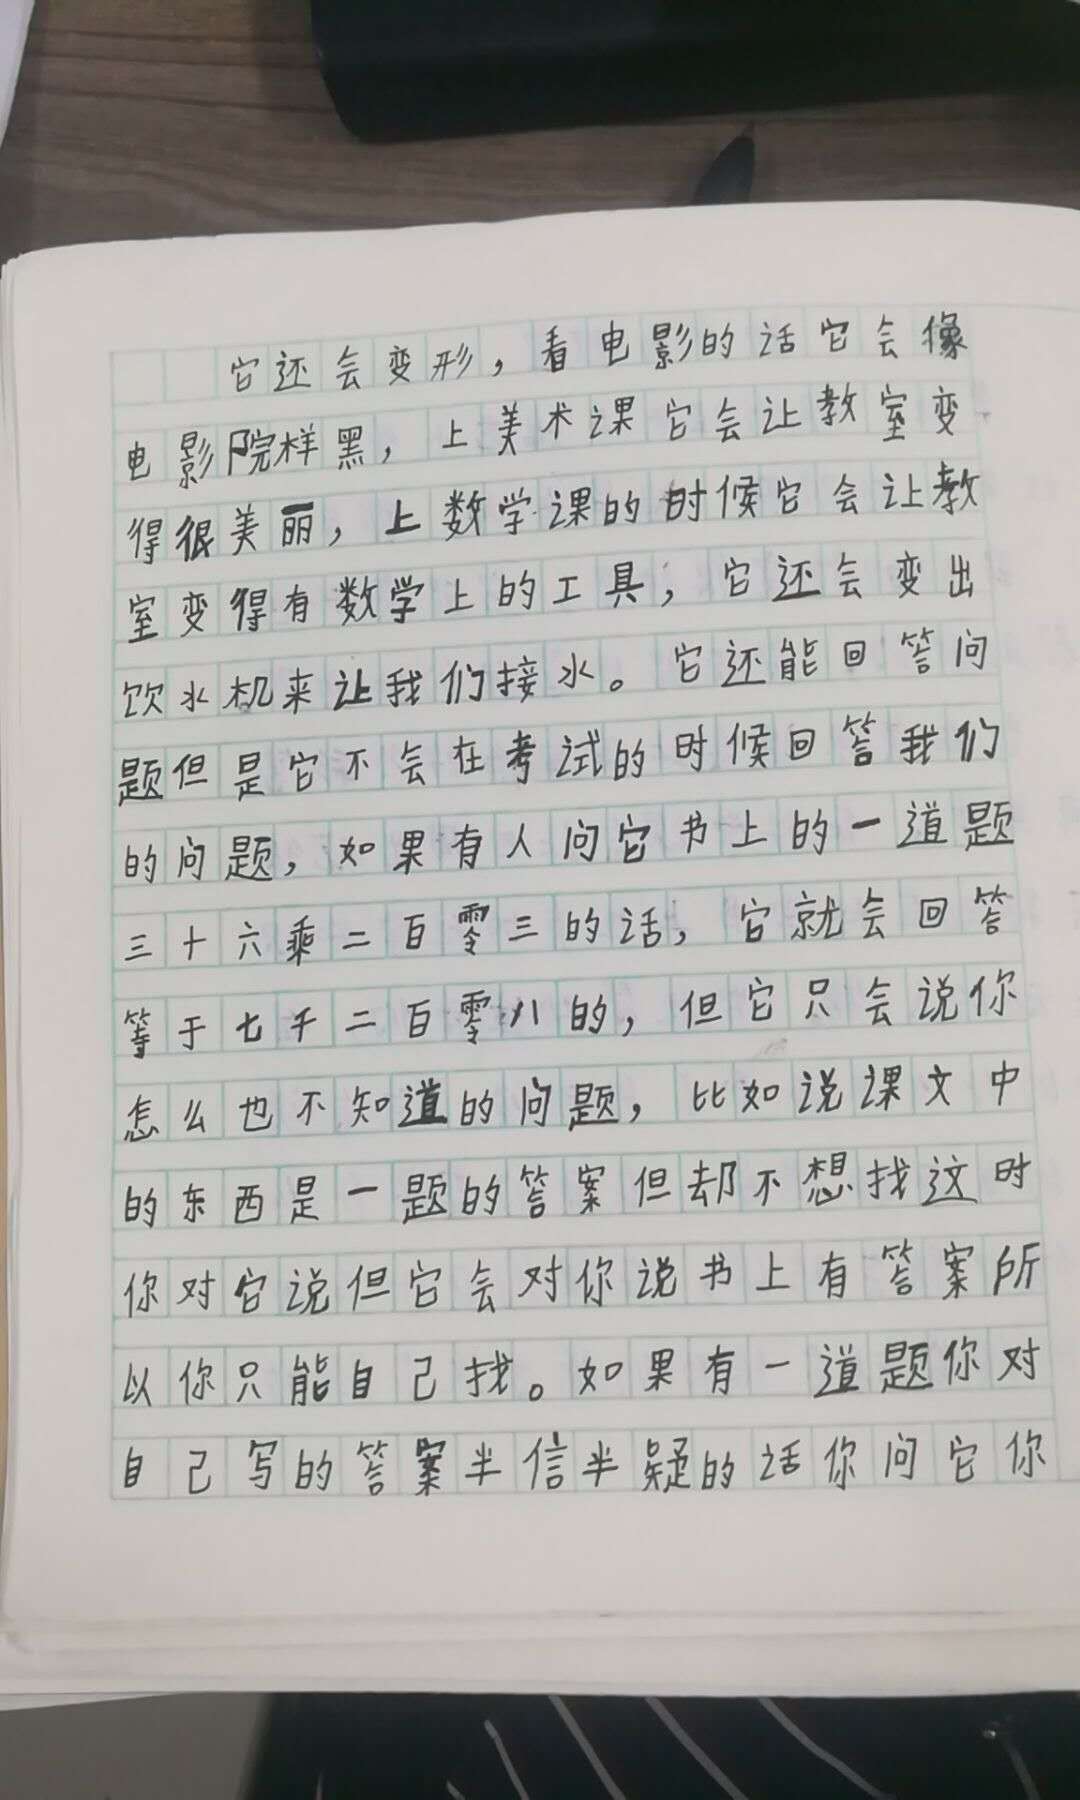 它还会变形，看电影的话它会像
电影院样黑，上美术课它会让教室变
得很美丽，上数学课的时候它会让教
室变得有数学上的工具，它还会变出
饮水机来让我们接水。它还能回答问
题但是它不会在考试的时候回答我们
的问题，如果有人问它书上的一道题
三十六乘二百零三的话，它就会回答
等于七千二百零八的，但它只会说你
怎么也不知道的问题，比如说课文中
的东西是一题的答案但却不想找这时
你对它说但它会对你说书上有答案所
以你只能自己找。如果有一道题你对
自己写的答案半信半疑的话你问它你